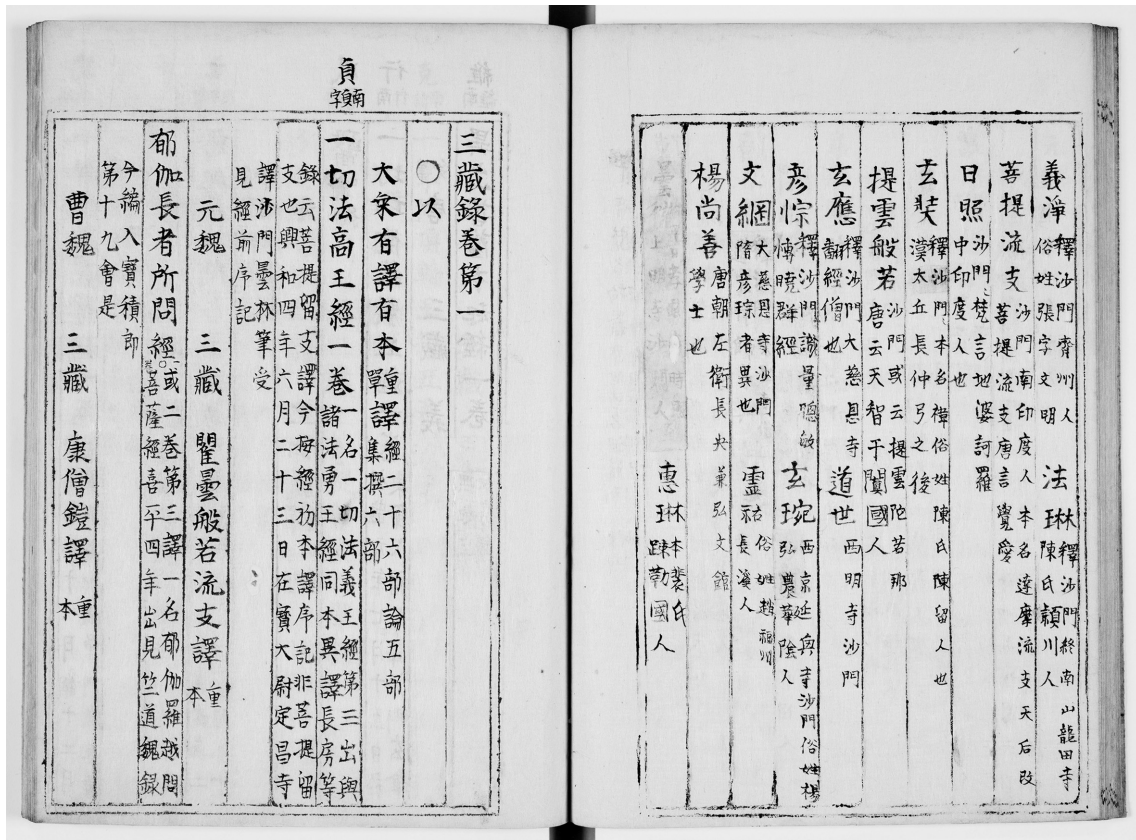 義淨釋沙門齊州人俗姓張字文明 法琳釋沙門終南山龍田寺陳氏頴川人
菩提流支沙門南印度人本名達摩流支天后改菩提流支唐言覺愛
日照沙門梵言地婆訶羅中印度人也
玄奘釋沙門本名禕俗姓陳氏陳留人也漢太丘長仲弓之後
提雲般若沙門或云提雲陀若那唐云天智于闐國人
玄應釋沙門大慈恩寺翻經僧也 道世西明寺沙門
彦悰釋沙門識量聰敏慱曉群經 玄琬西京延興寺沙門俗姓楊弘農華陰人
文綱大慈恩寺沙門隋彦琮者異也 霊祐俗姓趙福州長溪人
楊尚善唐朝左衛長史兼弘文館學士也
惠琳本裴氏踈勒國人
三藏錄卷第一
○以
大乗有譯有本重譯經二十六部論五部單譯集撰六部
貞南貞字
一切法高王經一卷一名一切法義王經第三出與諸法勇王經同本異譯長房等
錄云菩提留支譯今按經初本譯序記非菩提留支也興和四年六月二十三日在寳大尉定昌寺
譯沙門曇林筆受見經前序記
元魏 三藏 瞿曇般若流支譯 重本
郁伽長者所問經一或二卷第三譯一名郁伽羅越問菩薩經喜平四年出見竺道魏録
今編入寳積即第十九會是
曹魏 三藏 康僧鎧譯 重本